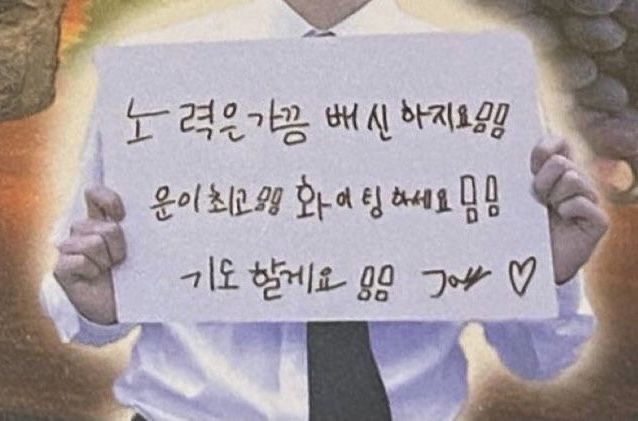 노력은 가끔 배신 하지요!!
운이 최고!! 화이팅 하세요!!
기도 할게요!! ♡